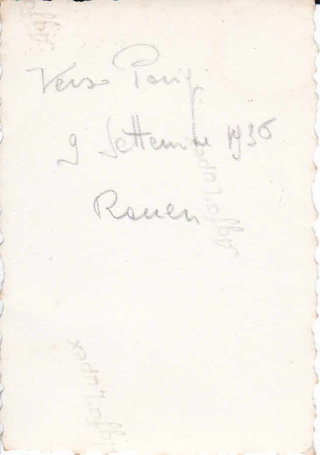 Verso Parigi
9 Settembre 1936
Rouen
Agfa-Lupex
Agfa-Lupex